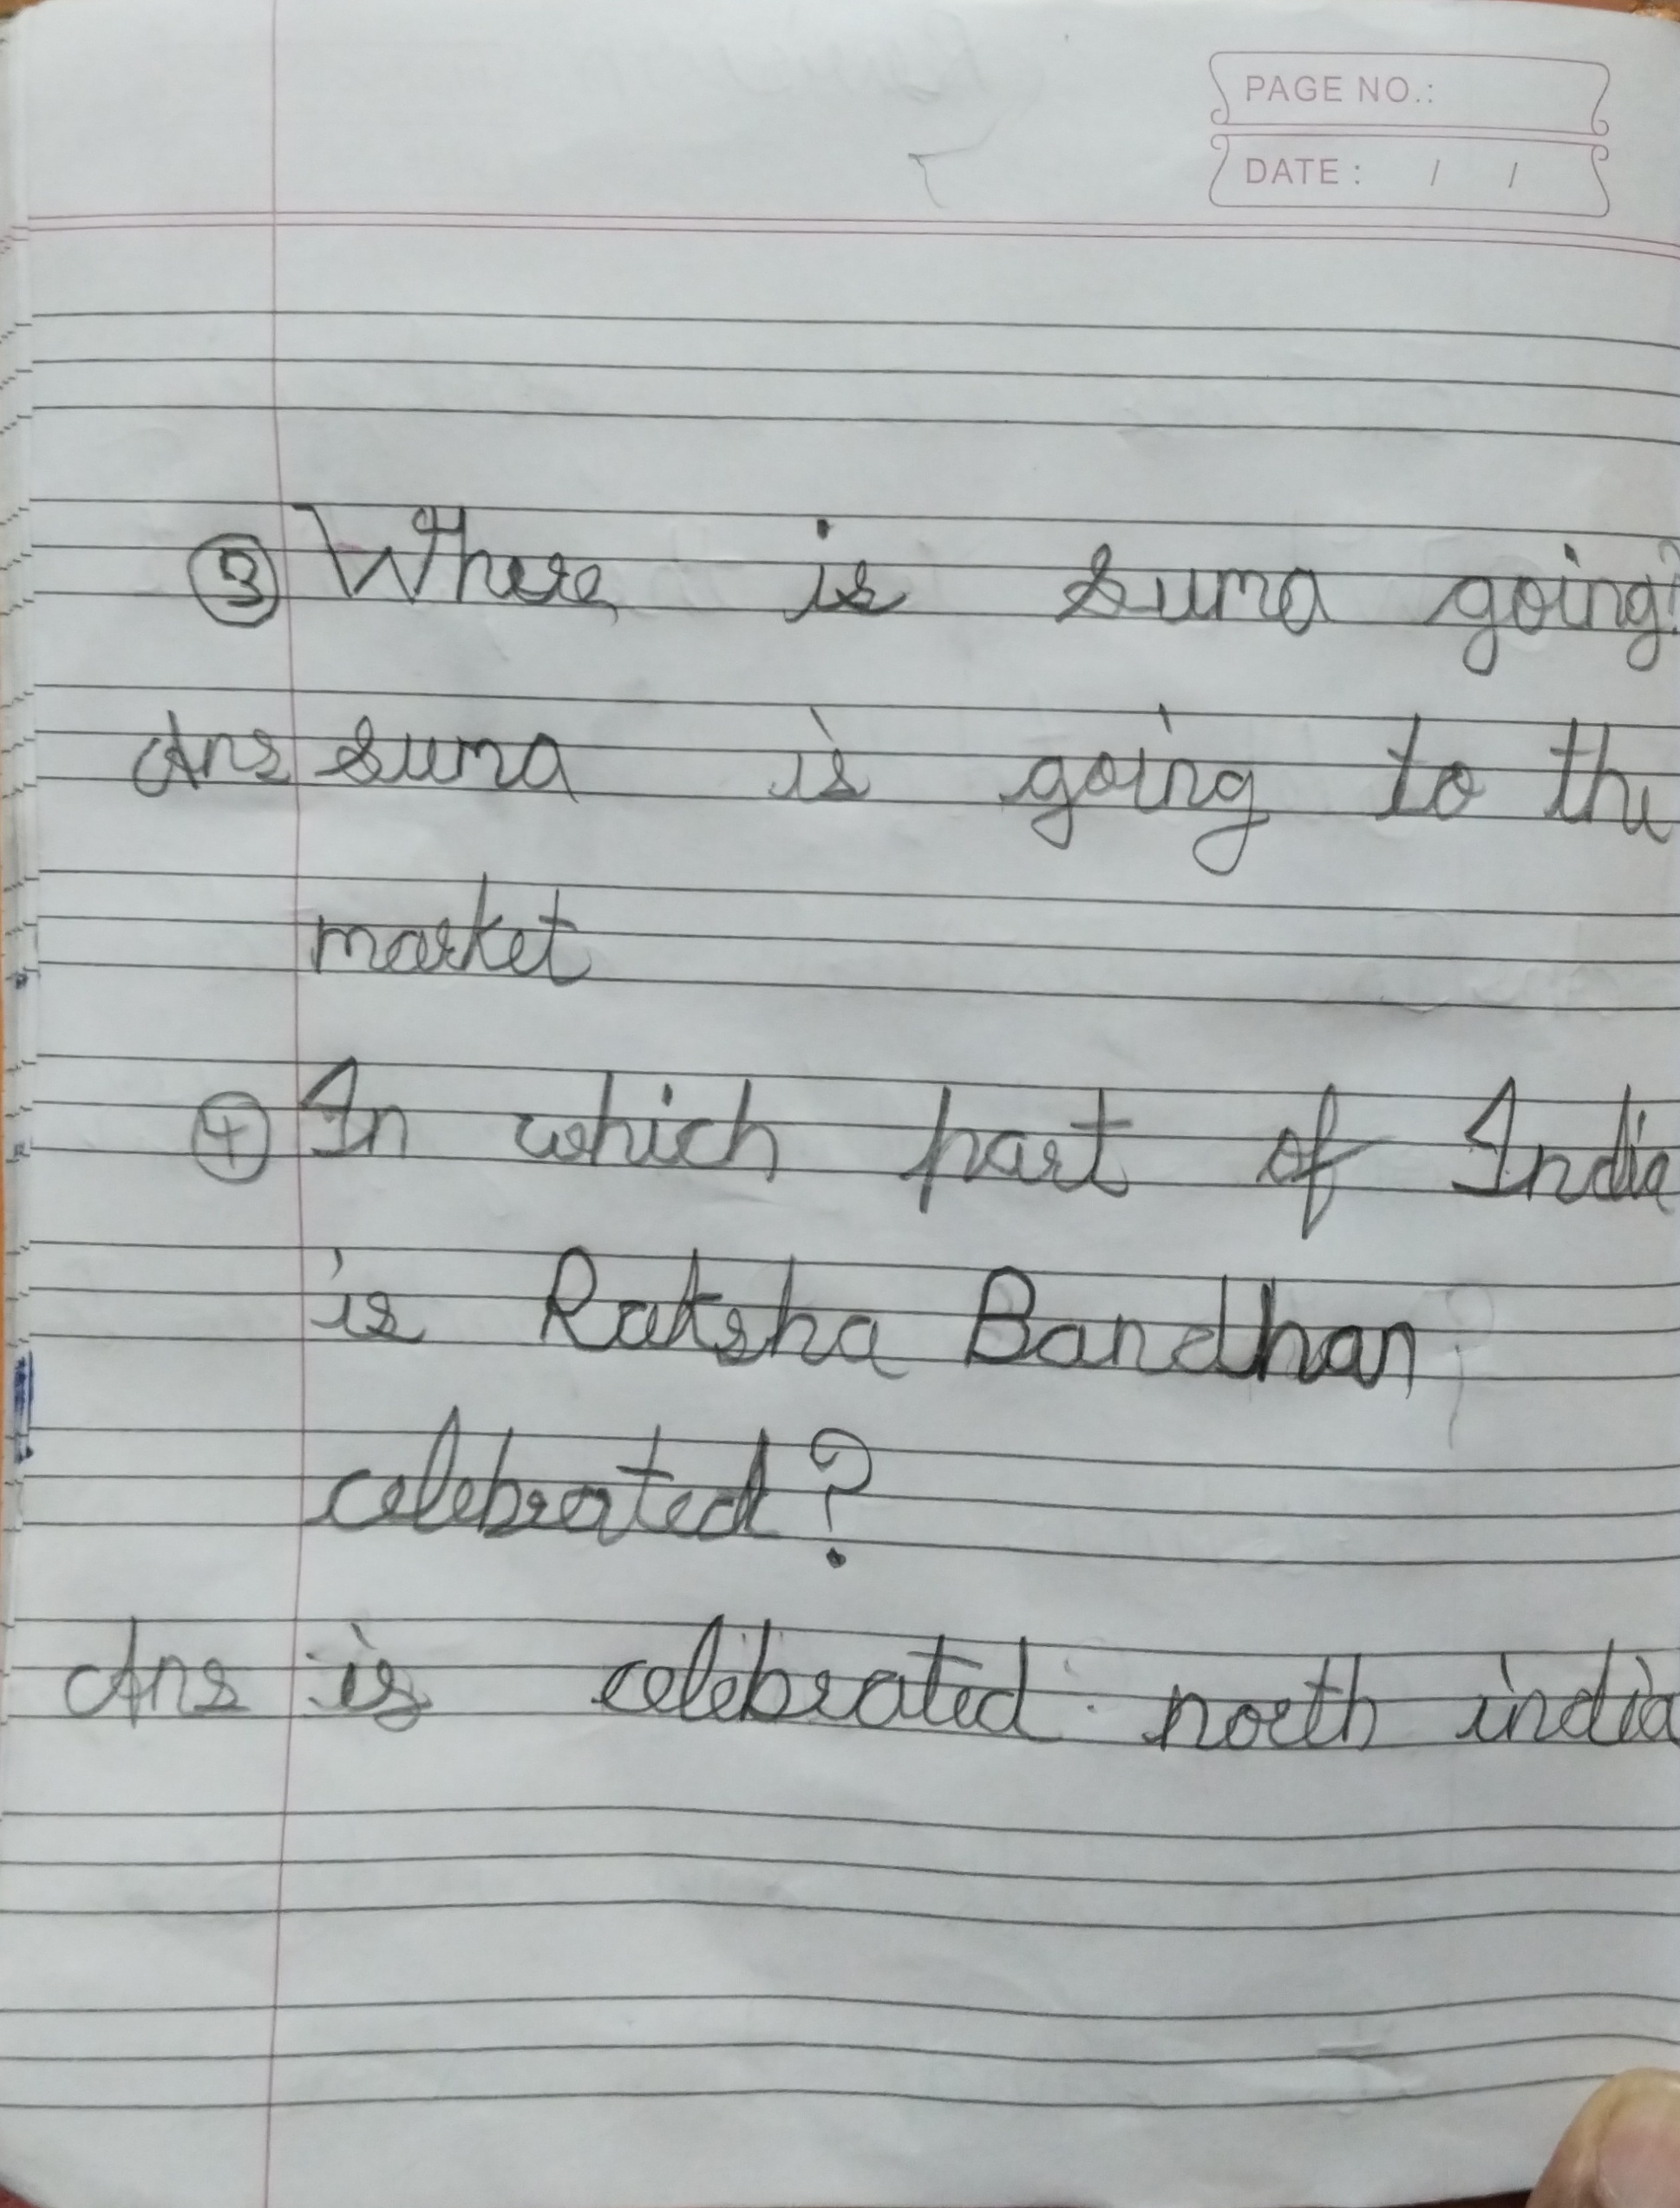 PAGE NO.:
DATE : / /
③ Where is Suma going?
Ans Suma is going to the
market
④ In which part of India
is Raksha Bandhan
celebrated?
Ans is celebrated north india